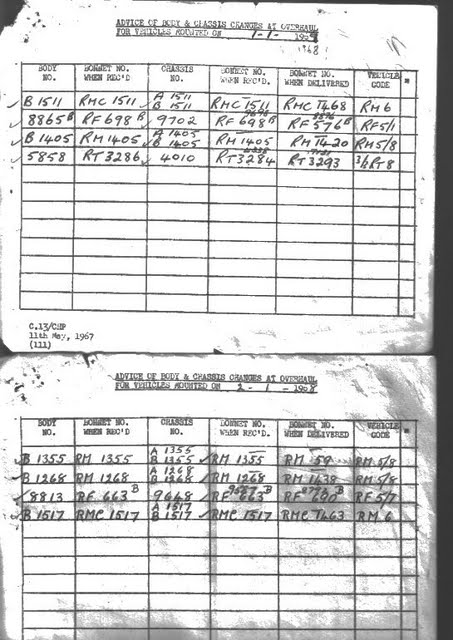 ADVICE OF BODY & CHASSIS CHANGES AT OVERHAUL
FOR VEHICLES MOUNTED ON 1-1-1968
1968
BODY NO. BONNET NO. WHEN REC'D CHASSIS NO. BONNET NO. WHEN REC'D. BONNET NO. WHEN DELIVERED VEHICLE CODE *
B 1511 RMC 1511 A 1511 B 1511 RMC 1511 RMC 1468 RM 6
8865 B RF 698 B 9702 RF 698 B RF 576 B RF 5/1
B 1405 RM 1405 A 1405 B 1405 RM 1405 RM 1420 RM 5/8
5858 RT 3286 4010 RT 3284 RT 3293 3/2 RT 8
C.13/CEP
11th May, 1967
(111)
ADVICE OF BODY & CHASSIS CHANGES AT OVERHAUL
FOR VEHICLES MOUNTED ON 2 - 1 - 1968
BODY NO. BONNET NO. WHEN REC'D CHASSIS NO. BONNET NO. WHEN REC'D. BONNET NO. WHEN DELIVERED VEHICLE CODE *
B 1355 RM 1355 A 1355 B 1355 RM 1355 RM 59 RM 5/8
B 1268 RM 1268 A 1268 B 1268 RM 1268 RM 1438 RM 5/8
8813 RF 663 B 9648 RF 663 B RF 690 B RF 5/7
B 1517 RMC 1517 A 1517 B 1517 RMC 1517 RMC 1463 RM 6